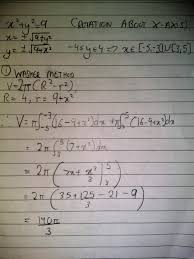 x²+y²=9 (ROTATION ABOUT X-AXIS)
x = ±√9+y²
y = ±√9+x² -4≤y≤4 ⇒ x∈[-5,-3]∪[3,5]
① WASHER METHOD
V = 2π(R²-r²)
R=4, r=9+x²
∴ V = π∫₋₅⁻³(16-9+x²)dx + π∫₃⁵(16-9+x²)dx
= 2π∫₃⁵(7+x²)dx
= 2π(7x+x³/3)₃⁵
= 2π(35+125/3-21-9)
= 140π/3